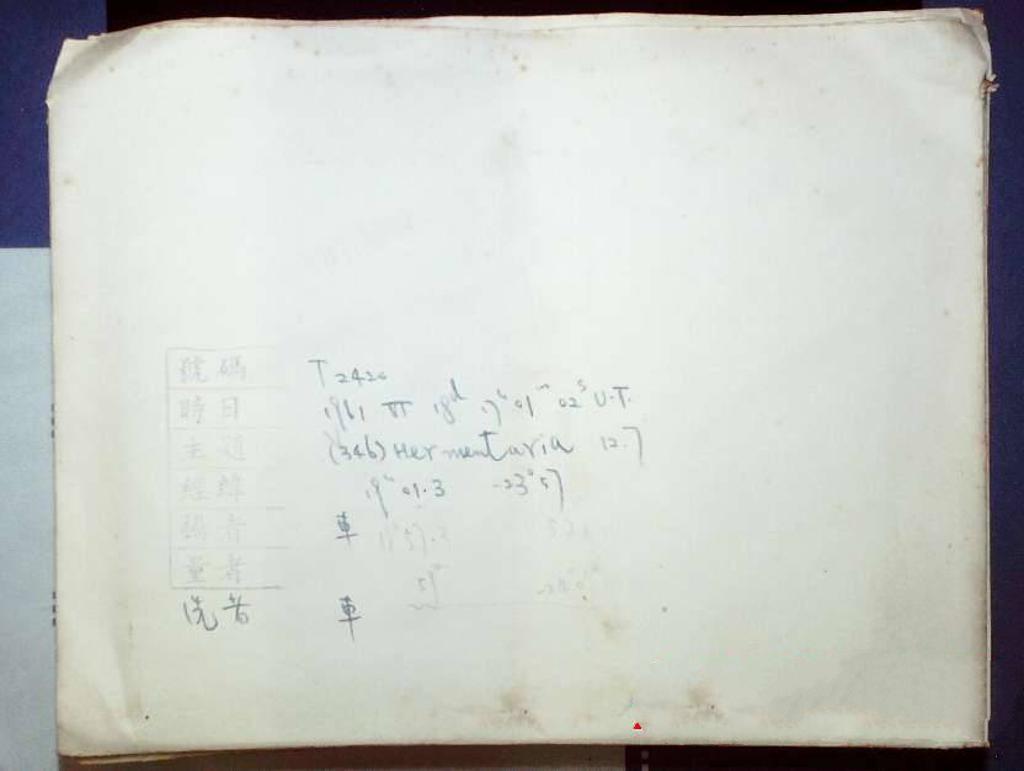 號碼 T2420
時日 1961 VI 18d 17h 01m 02s U.T.
主題 (346) Hermentaria 12.7
經緯 19h 01.3 -23°57
攝者 車
量者
洗者 車